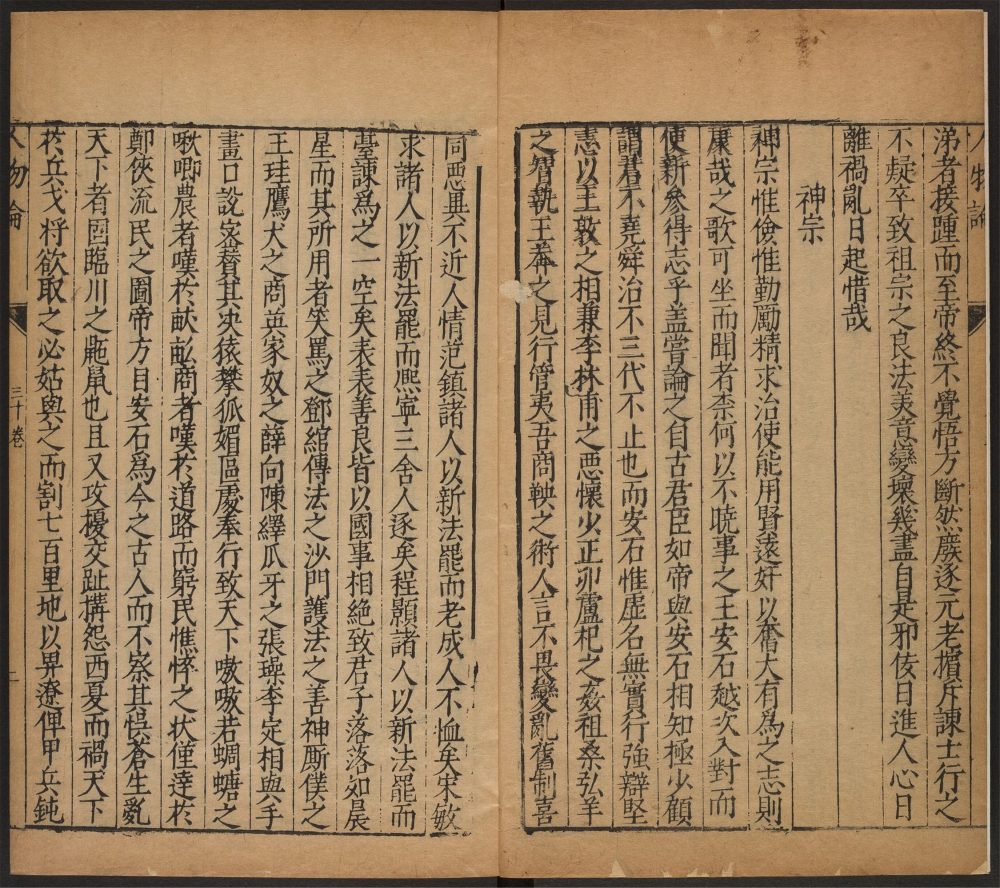 人物論
涕者接踵而至帝終不覺悟方斷然廢逐元老擯斥諫士行之
不疑卒致祖宗之良法美意變壞幾盡自是邪佞日進人心日
離禍亂日起惜哉
神宗
神宗惟儉惟勤勵精求治使能用賢遠奸以奮大有為之志則
康哉之歌可坐而聞者柰何以不曉事之王安石越次入對而
使新參得志乎盖嘗論之自古君臣如帝與安石相知極少顧
謂君不堯舜治不三代不止也而安石惟虛名無實行強辯堅
志以王敦之相兼李林甫之惡懷少正卯盧杞之姦祖桑弘羊
之智執王莽之見行管夷吾商鞅之術人言不畏變亂舊制喜
同惡異不近人情范鎮諸人以新法罷而老成人不恤矣宋敏
求諸人以新法罷而熈寧三舍人逐矣程顥諸人以新法罷而
臺諫為之一空矣表表善良皆以國事相絶致君子落落如晨
星而其所用者笑罵之鄧綰傳法之沙門護法之善神厮僕之
王珪鷹犬之商英家奴之薛向陳繹瓜牙之張璪李定相與手
畫口説宻賛其决依攀狐媚區處奉行致天下嗷嗷若蜩螗之
啾唧農者嘆於献畝商者嘆於道路而窮民憔悴之状僅達於
鄭俠流民之圖帝方目安石為今之古人而不察其悞蒼生亂
天下者國臨川之鼫鼠也且又攻擾交趾搆怨西夏而禍天下
於兵戈将欲取之必姑與之而割七百里地以畀遼俾甲兵鈍
人物論
三十卷
二